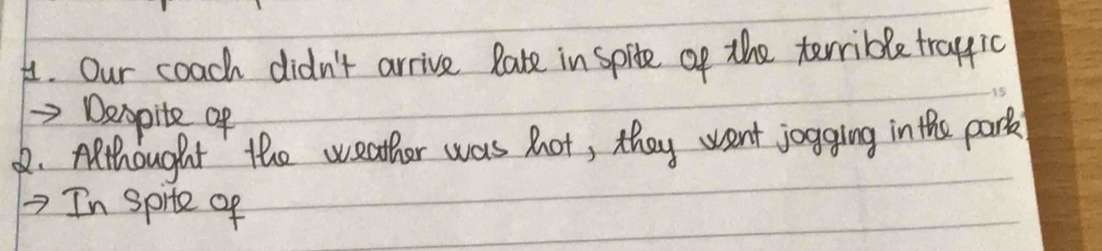 1. Our coach didn't arrive late in spite of the terrible traffic
→ Despite of
2. Althought the weather was hot, they went jogging in the park.
→ In spite of